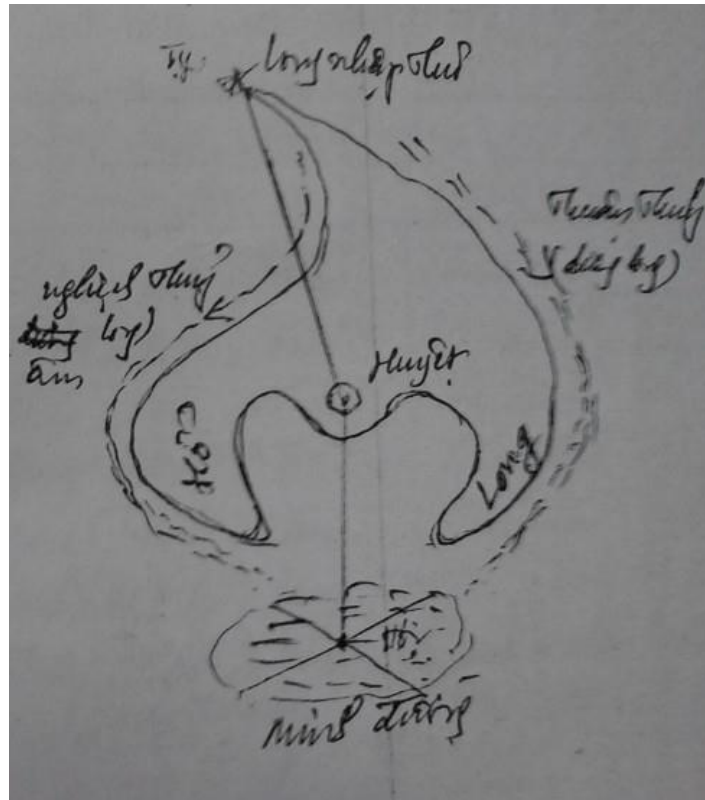 Tỵ.
Long nhập thủ
Thuận Thuỷ
(dương long)
nghịch Thuỷ
long)
âm
Huyệt
Hổ
Long
Minh đường